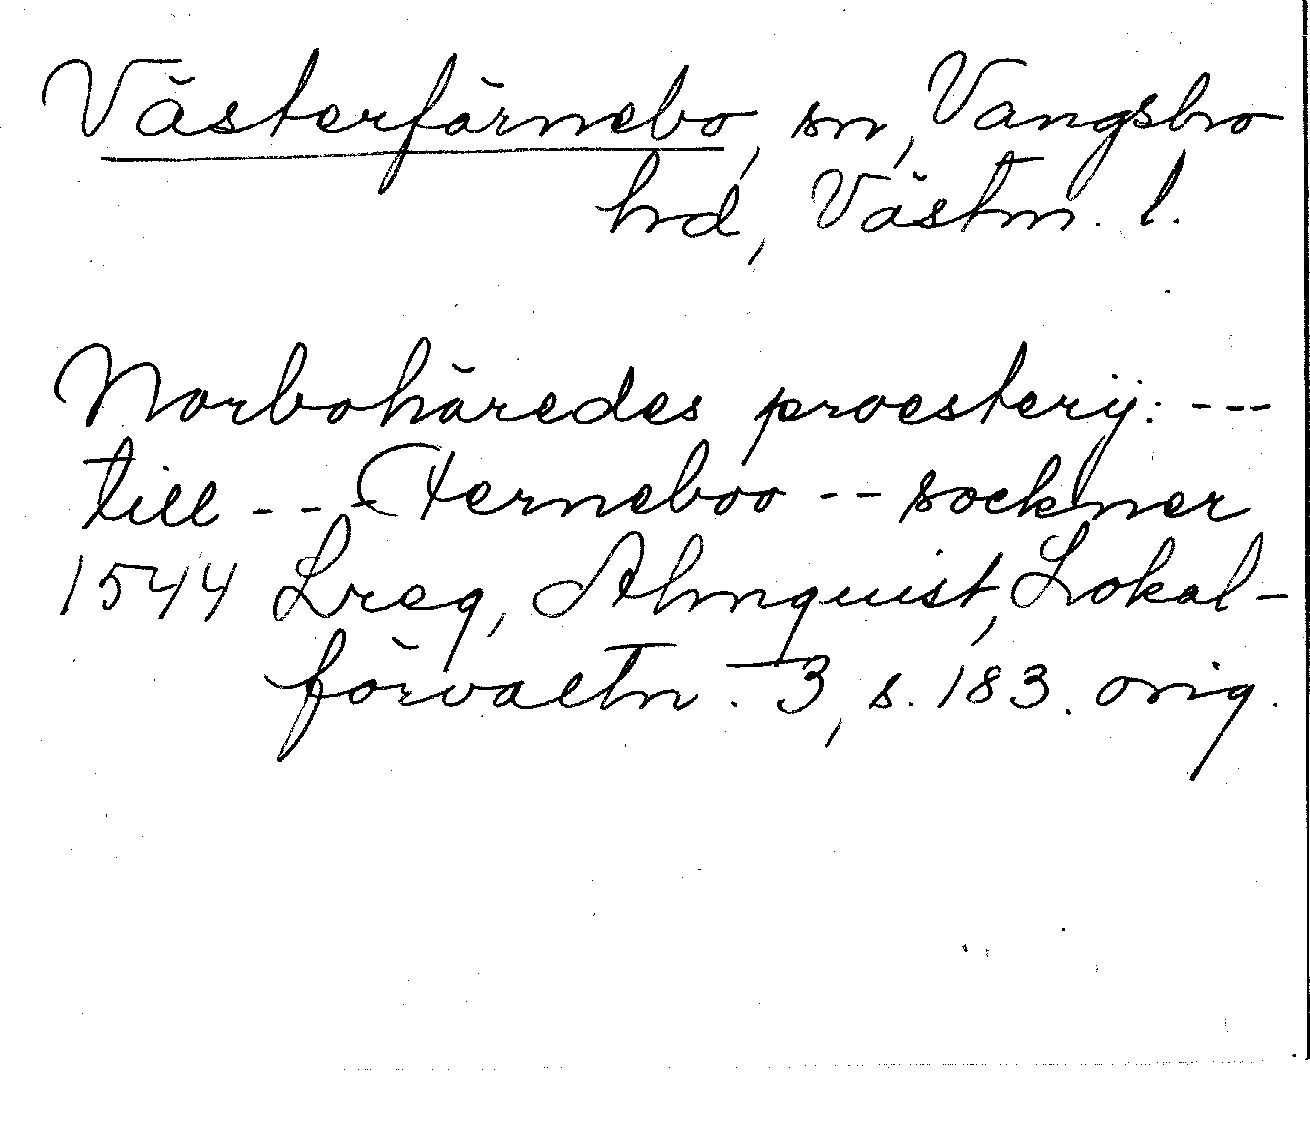 Västerfärnebo, sn, Vangsbro
hd, Västm. l.
Norbohäredes proesterij: ---
till --- Ferneboo -- sockner
1544 Lreg, Almquist, Lokal-
förvaltn. 3, s. 183. orig.